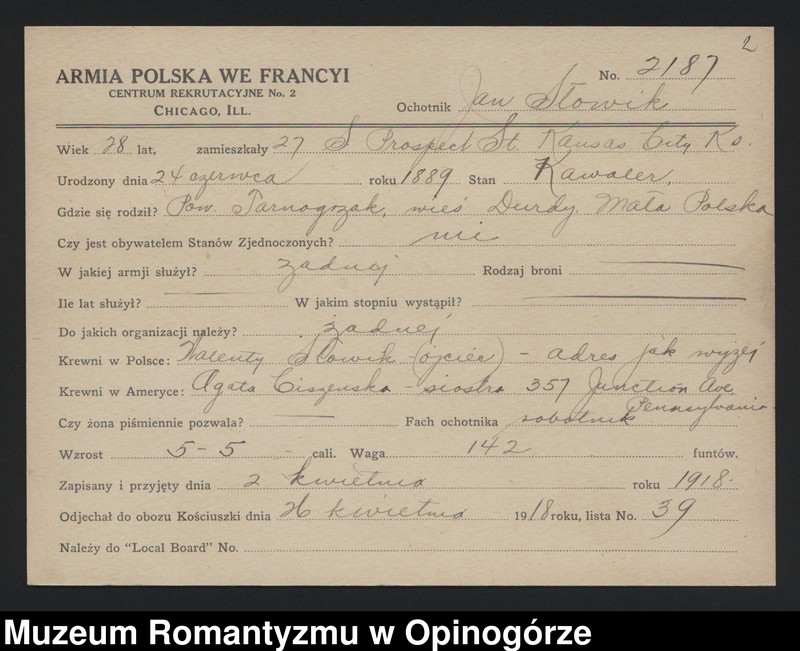 2
ARMIA POLSKA WE FRANCYI
No. 2187
CENTRUM REKRUTACYJNE No. 2
CHICAGO, ILL.
Ochotnik Jan Słowik
Wiek 28 lat, zamieszkały 27 S. Prospect St. Kansas City Ks.
Urodzony dnia 24 czerwca roku 1889 Stan Kawaler,
Gdzie się rodził? Pow. Tarnogrzak, wieś Durdy, Mała Polska
Czy jest obywatelem Stanów Zjednoczonych? nie
W jakiej armji służył? żadnej Rodzaj broni
Ile lat służył? W jakim stopniu wystąpił?
Do jakich organizacji należy? żadnej
Krewni w Polsce: Walenty Słowik (ojciec) - adres jak wyżej
Krewni w Ameryce: Agata - siostra 357 Junction Ave.
Pennsylvania
Czy żona piśmiennie pozwala? Fach ochotnika robotnik
Wzrost 5-5 cali. Waga 142 funtów.
Zapisany i przyjęty dnia 2 kwietnia roku 1918.
Odjechał do obozu Kościuszki dnia 26 kwietnia 1918 roku, lista No. 39
Należy do "Local Board" No.
Muzeum Romantyzmu w Opinogórze